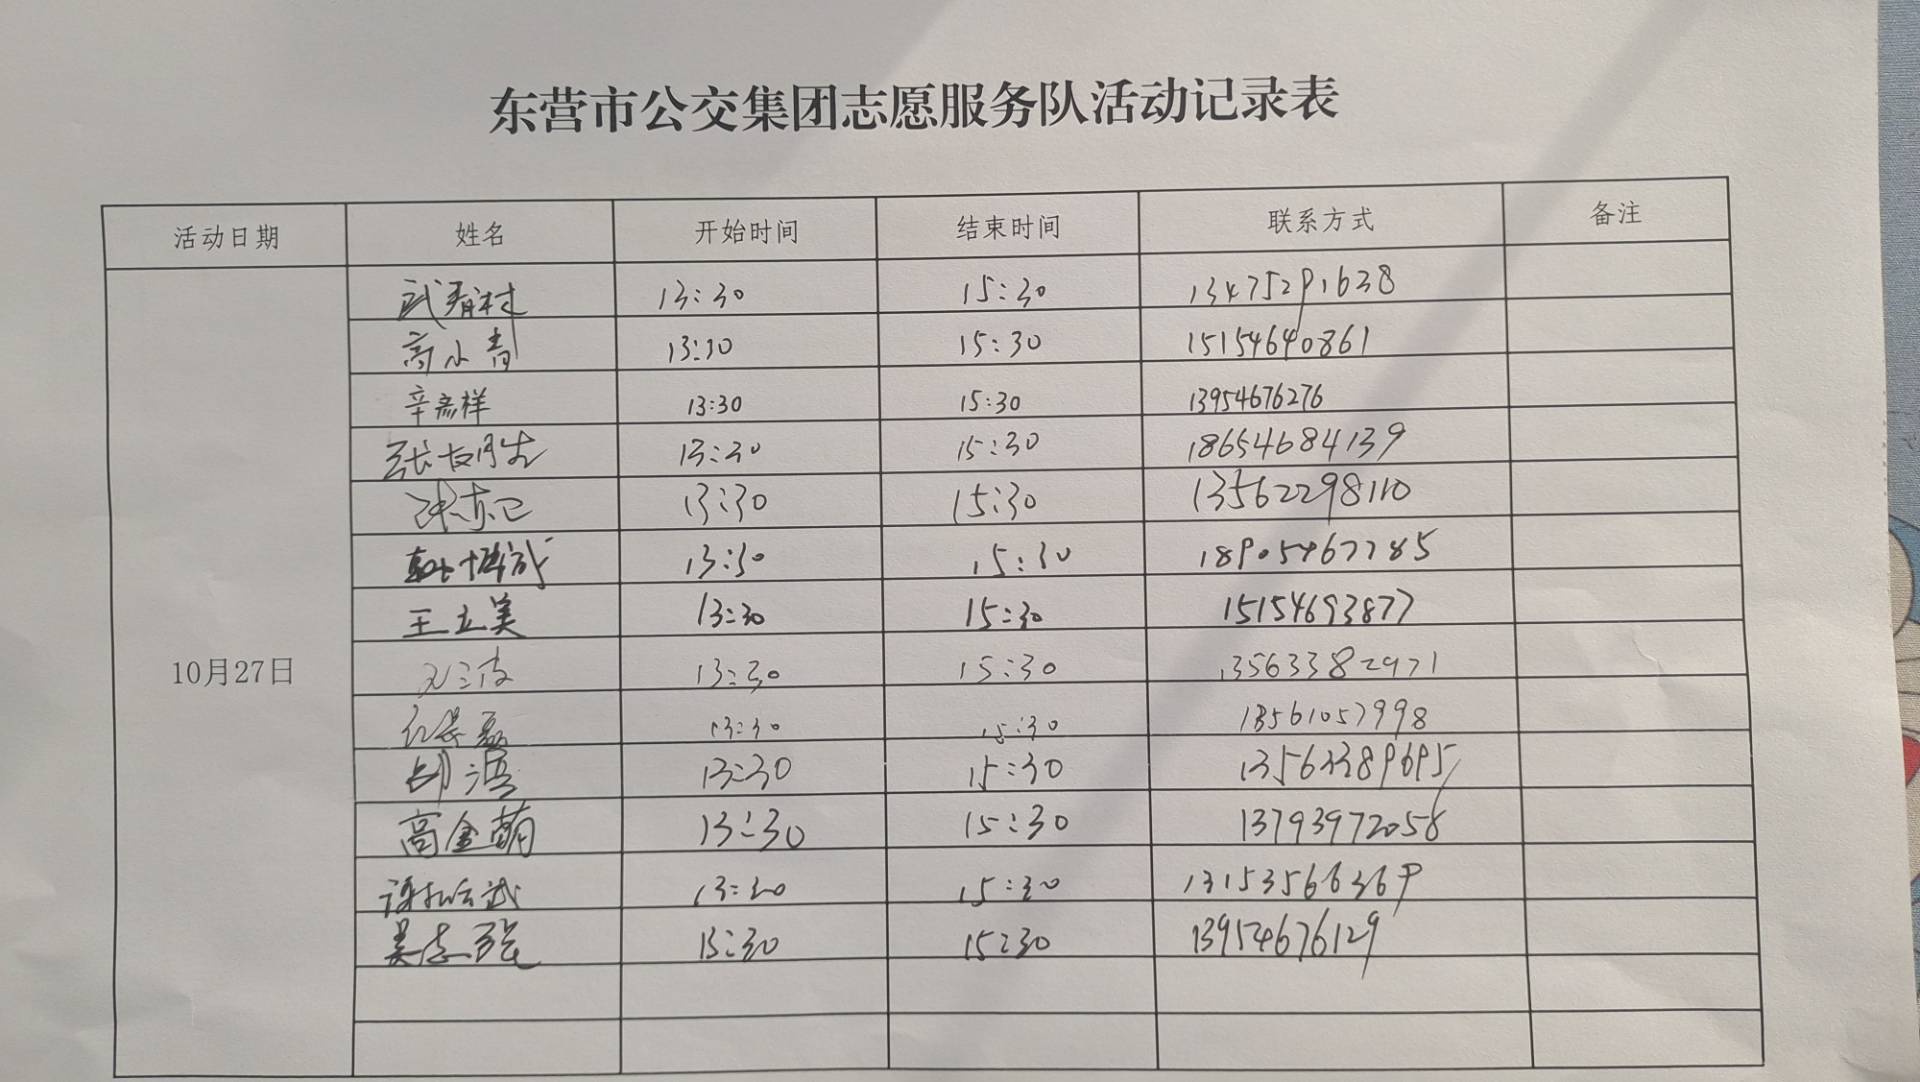 东营市公交集团志愿服务队活动记录表
活动日期 姓名 开始时间 结束时间 联系方式 备注
武春村 13:30 15:30 13475291638
高小青 13:30 15:30 15154640861
辛彦祥 13:30 15:30 13954676276
13:30 15:30 18654684139
13:30 15:30 13562298110
13:30 15:30 18905467785
王立美 13:30 15:30 15154693877
10月27日 13:30 15:30 13563382971
13:30 15:30 13561057998
13:30 15:30 13563389695
高金萌 13:30 15:30 13793972058
13:30 15:30 13153566369
吴志强 13:30 15:30 13954676129